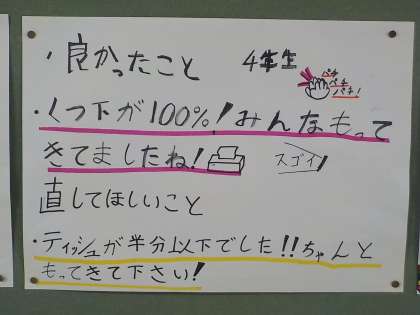 ・良かったこと 4年生
パチ
パチ
パチ!
・くつ下が100%!みんなもって
きてましたね! スゴイ!
直してほしいこと
・ティッシュが半分以下でした!!ちゃんと
もってきて下さい!